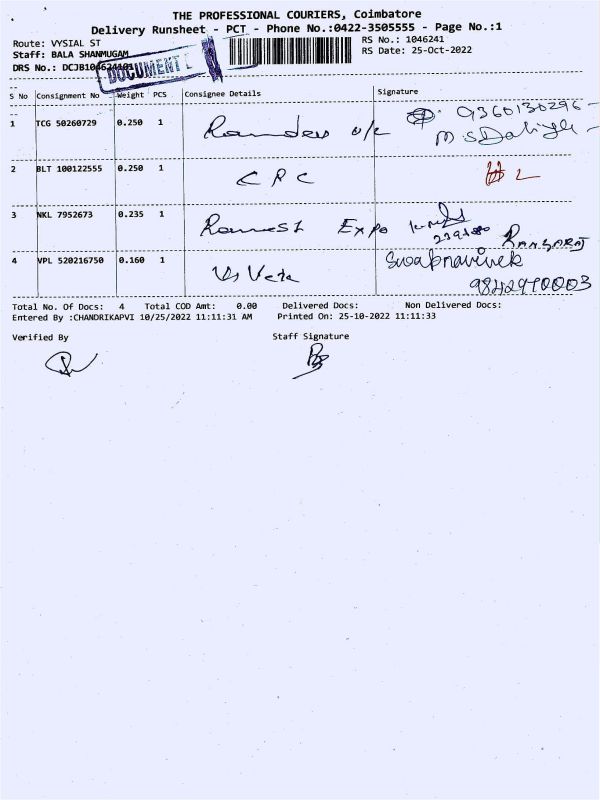 THE PROFESSIONAL COURIERS, Coimbatore
Delivery Runsheet - PCT - Phone No.:0422-3505555 - Page No.:1
Route: VYSIAL ST
RS No.: 1046241
Staff: BALA SHANMUGAM
RS Date: 25-Oct-2022
DRS No.:
DOCUMENT
S No Consignment No Weight PCS Consignee Details Signature
1 TCG 50260729 0.250 1 9360130296
2 BLT 100122555 0.250 1 CRC
3 NKL 7952673 0.235 1 Ramesh Expo RANGARAJ
4 VPL 520216750 0.160 1 Swapnavivek
9842970003
Total No. Of Docs: 4 Total COD Amt: 0.00 Delivered Docs: Non Delivered Docs:
Entered By :CHANDRIKAPVI 10/25/2022 11:11:31 AM Printed On: 25-10-2022 11:11:33
Verified By Staff Signature